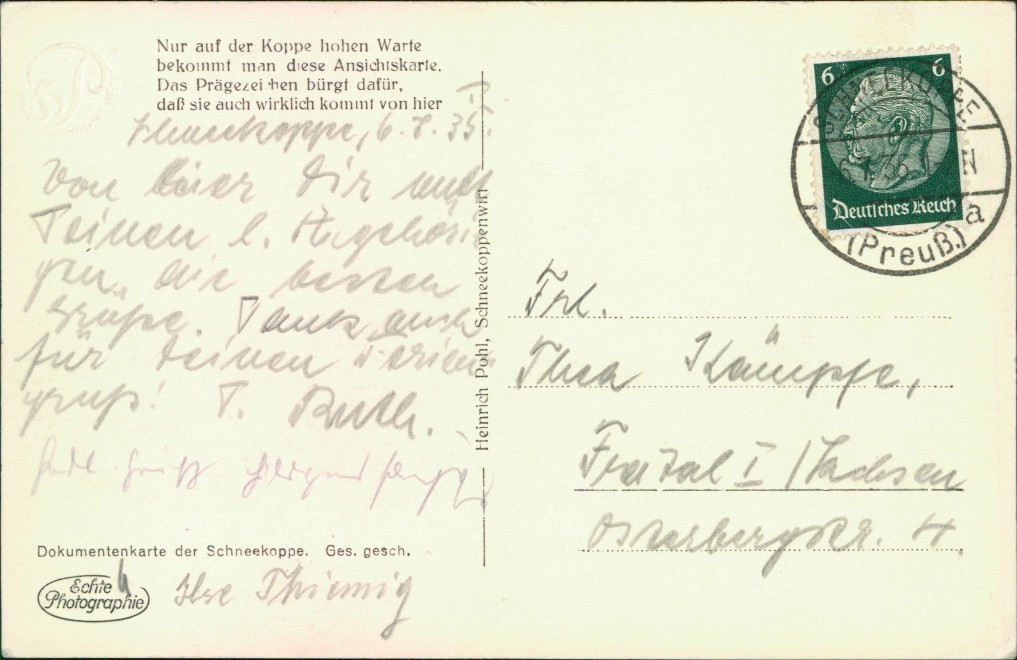 Nur auf der Koppe hohen Warte
bekommt man diese Ansichtskarte.
Das Prägezeichen bürgt dafür,
daß sie auch wirklich kommt von hier
Schneekoppe, 6. 7. 35.
Von hier Dir und
Deinen l. Angehöri
gen, die besten
Grüße. Dank auch
für Deinen Ferien
gruß! D. Ruth.
Ilse Thiemig
Dokumentenkarte der Schneekoppe. Ges. gesch.
Echte
Photographie
Heinrich Pohl, Schneekoppenwirt
6 6
Deutsches Reich
SCHNEEKOPPE
(Preuß.) a
Frl.
Thea Kämpfe,
Freital I / Sachsen
Osterbergstr. 4.